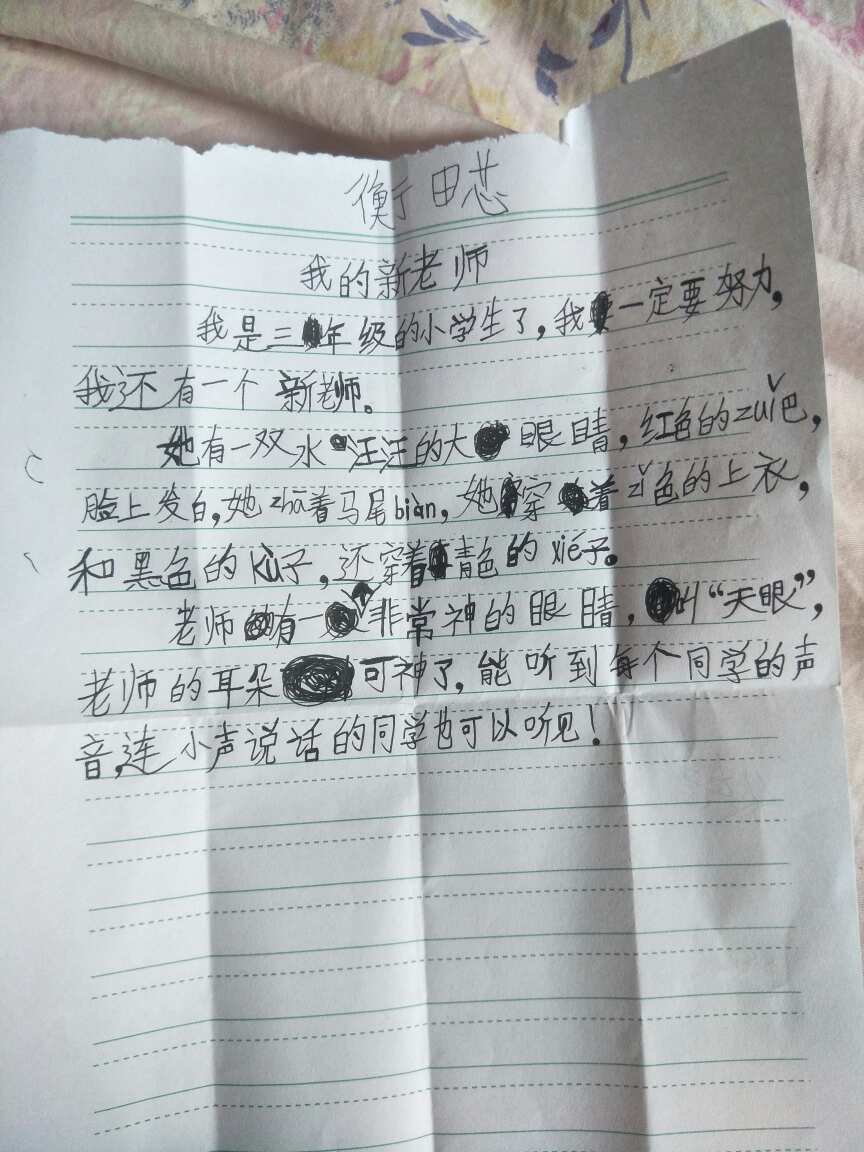 衡田芯
我的新老师
我是三年级的小学生了，我一定要努力，
我还有一个新老师。
她有一双水汪汪的大眼睛，红色的zuǐ巴，
脸上发白，她zhā着马尾biàn，她穿着zǐ色的上衣，
和黑色的kù子，还穿着青色的xié子。
老师有一非常神的眼睛，叫“天眼”，
老师的耳朵可神了，能听到每个同学的声
音，连小声说话的同学也可以听见！